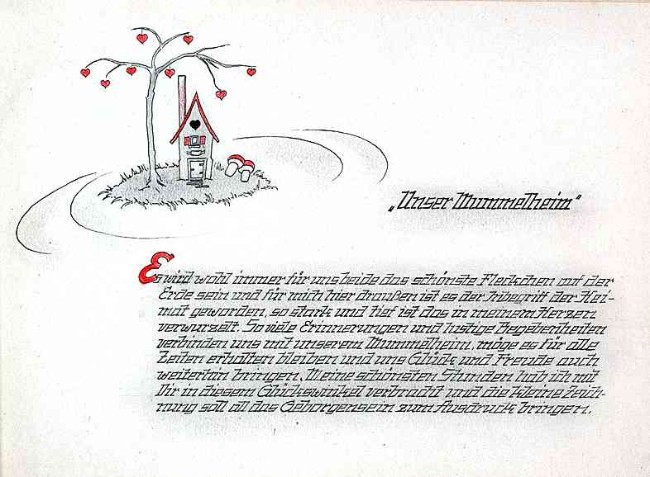 „Unser Mummelheim"
Es wird wohl immer für uns beide das schönste Fleckchen auf der
Erde sein und für mich hier draußen ist es der Inbegriff der Hei-
mat geworden, so stark und tief ist das in meinem Herzen
verwurzelt. So viele Erinnerungen und lustige Begebenheiten
verbinden uns mit unserem Mummelheim, möge es für alle
Zeiten erhalten bleiben und uns Glück und Freude auch
weiterhin bringen. Meine schönsten Stunden hab ich mit
Dir in diesem Glückswinkel verbracht und die kleine Zeich-
nung soll all das Geborgensein zum Ausdruck bringen.